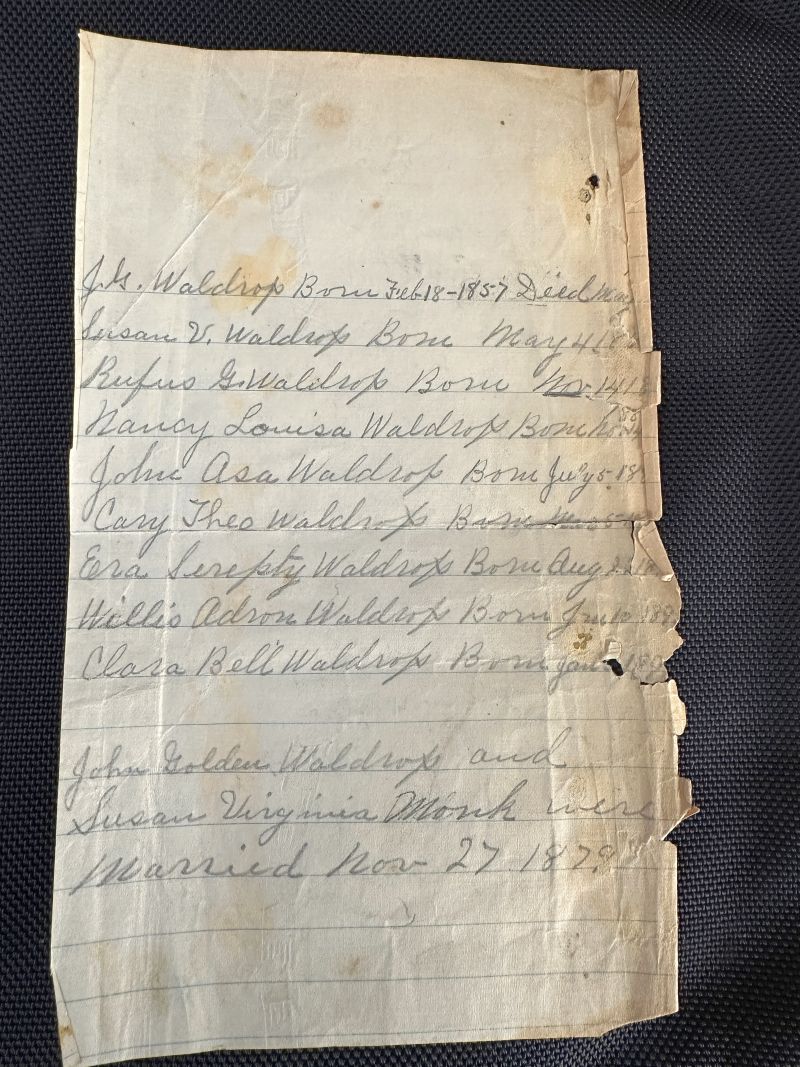 J.G. Waldrop Born Feb 18-1857 Died May
Susan V. Waldrop Born May 4
Rufus G. Waldrop Born Nov 14
Nancy Louisa Waldrop Born
John Asa Waldrop Born July 5 18
Cary Theo Waldrop Born
Era Serepty Waldrop Born Aug
Willis Adron Waldrop Born Jan 10 189
Clara Bell Waldrop Born Jan
John Golden Waldrop and
Susan Virginia Monk were
Married Nov 27 1879